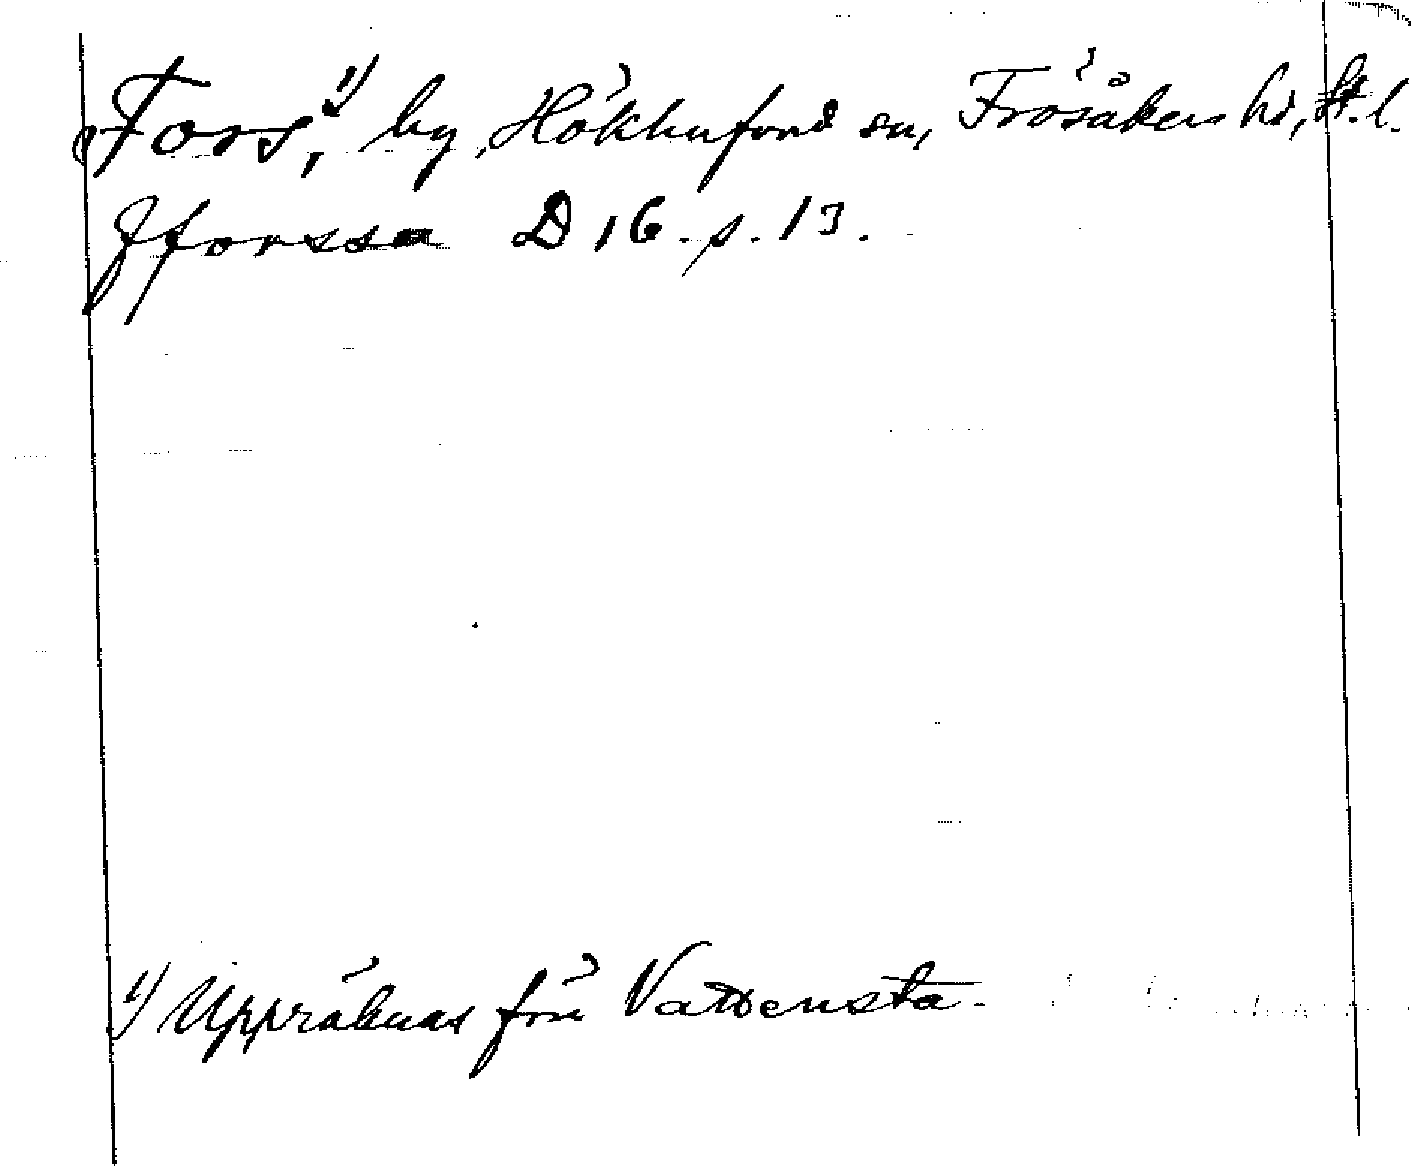 Fors,¹⁾ by, Hökhuvuds sn, Frösåkers hd, St. l.
Fforssa D 16. s. 13.
¹⁾ Uppräknas före Vattensta.